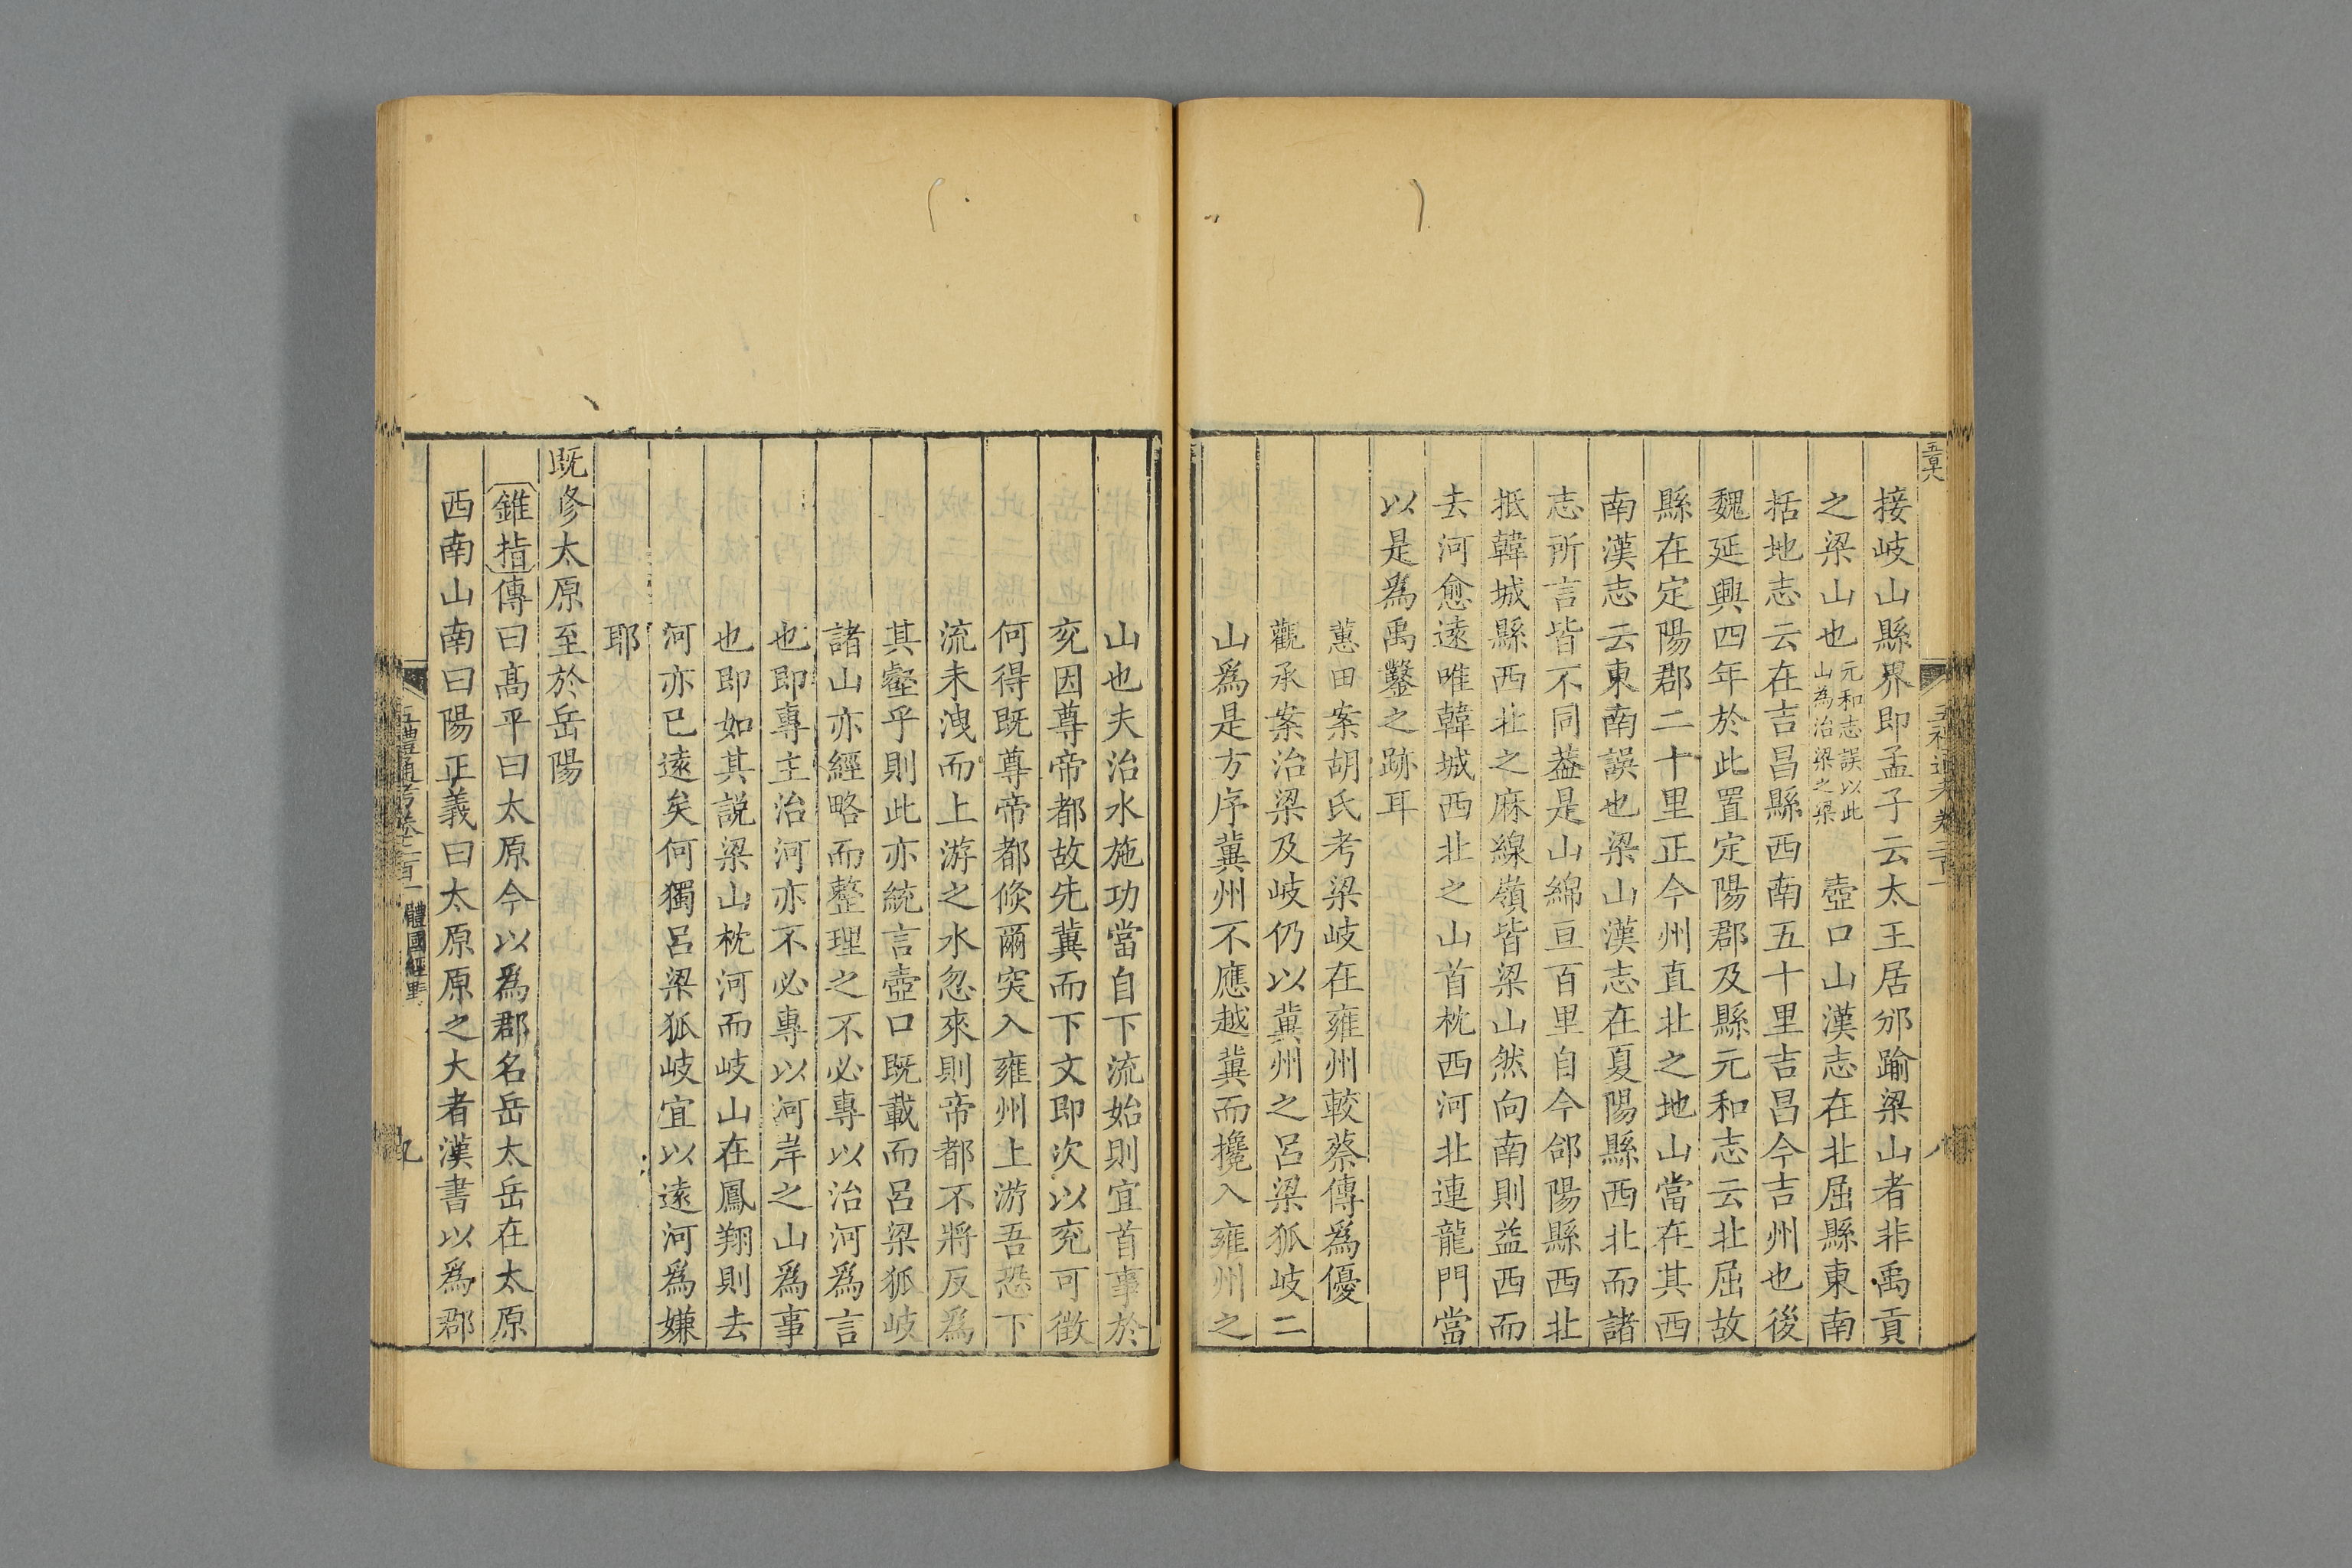 接岐山縣界即孟子云太王居邠踰梁山者非禹貢
之梁山也元和志誤以此山為治梁之梁 壺口山漢志在北屈縣東南
括地志云在吉昌縣西南五十里吉昌今吉州也後
魏延興四年於此置定陽郡及縣元和志云北屈故
縣在定陽郡二十里正今州直北之地山當在其西
南漢志云東南誤也梁山漢志在夏陽縣西北而諸
志所言皆不同葢是山綿亘百里自今郃陽縣西北
抵韓城縣西北之麻線嶺皆梁山然向南則益西而
去河愈遠唯韓城西北之山首枕西河北連龍門當
以是為禹鑿之跡耳
蕙田案胡氏考梁岐在雍州較蔡傳爲優
觀承案治梁及岐仍以冀州之呂梁狐岐二
山爲是方序冀州不應越冀而攙入雍州之
山也夫治水施功當自下流始則宜首事於
兖因尊帝都故先冀而下文即次以兖可徴
何得既尊帝都倐爾突入雍州上游吾恐下
流未洩而上游之水忽來則帝都不將反爲
其壑乎則此亦統言壺口既載而呂梁狐岐
諸山亦經略而整理之不必專以治河爲言
也即專主治河亦不必專以河岸之山爲事
也即如其説梁山枕河而岐山在鳳翔則去
河亦已遠矣何獨呂梁狐岐宜以遠河爲嫌
耶
既修太原至於岳陽
錐指傳曰高平曰太原今以爲郡名岳太岳在太原
西南山南曰陽正義曰太原原之大者漢書以爲郡
五禮通考卷二百一 體國經野
九